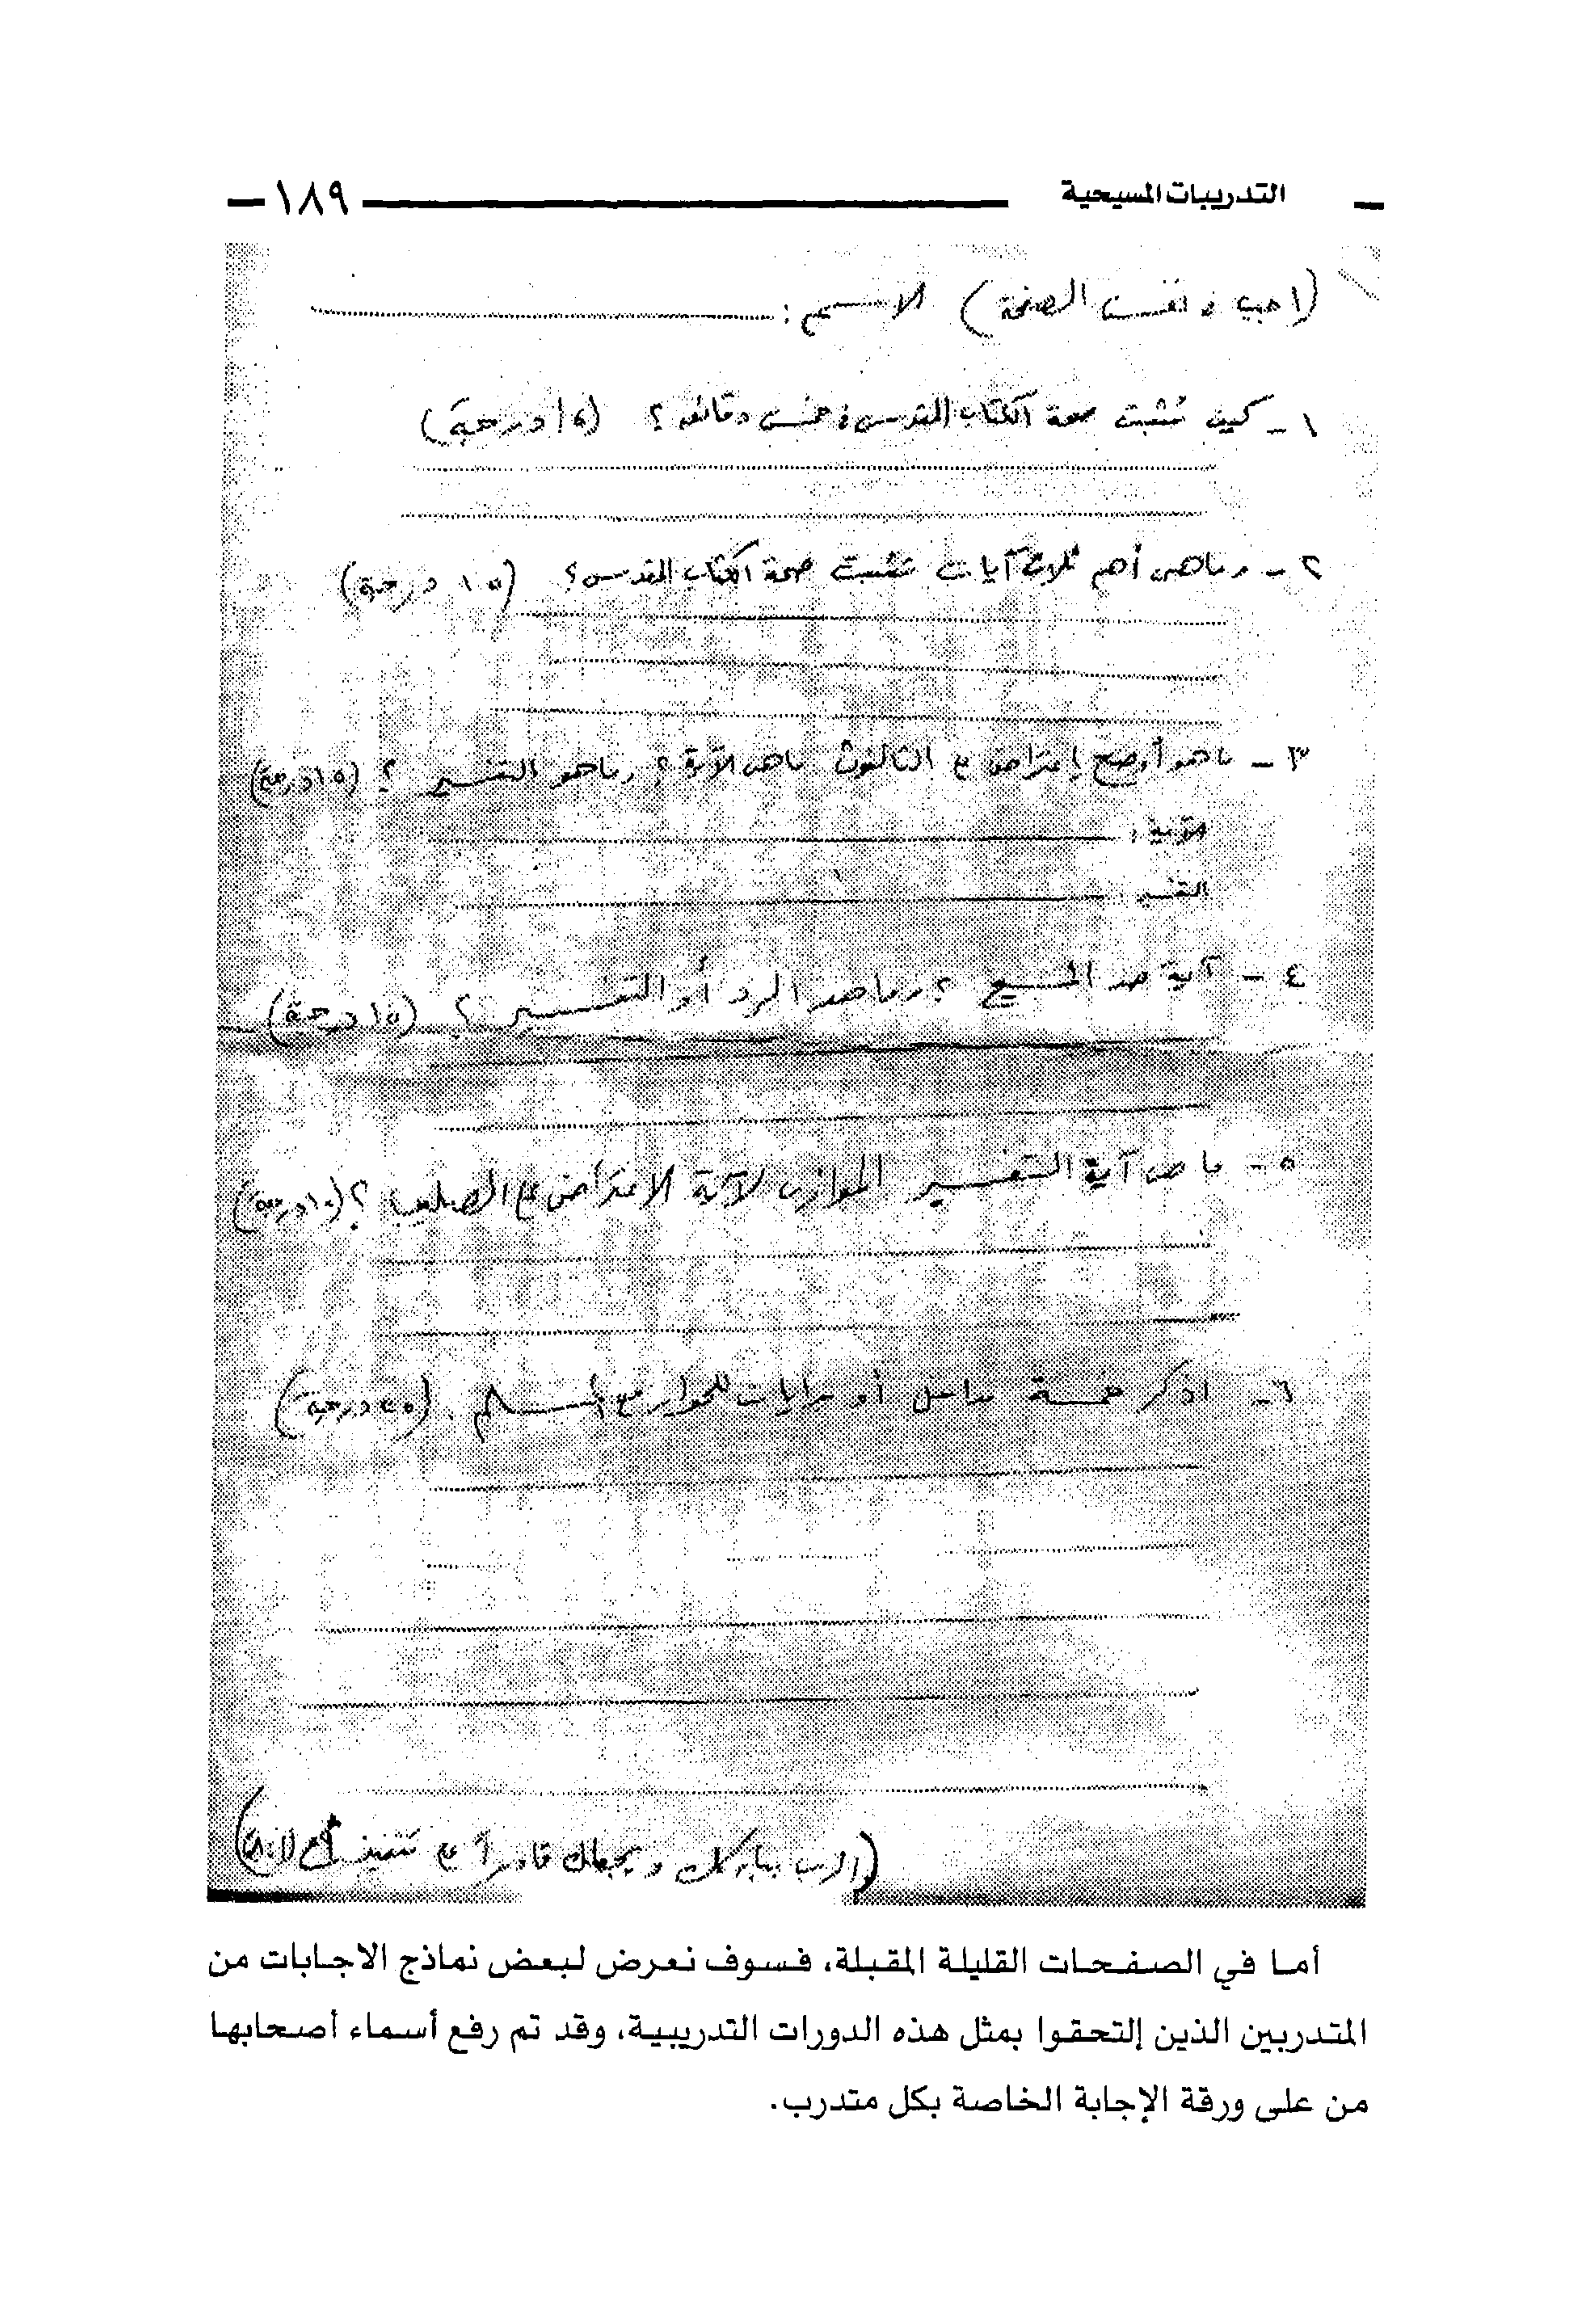 التدريبات المسيحية ١٨٩
(اجب في نفس الصفحة) الاسم:
١- كيف تثبت صحة الكتاب المقدس في خمس دقائق؟ درجة)
٢- وماهى أهم ثلاث آيات تثبت صحة الكتاب المقدس؟ (١٥ درجة)
٣- ماهو أوضح إعتراض ع الثالوث ماهى الآية؟ وماهو التفسير؟ (١٥ درجة)
الآية:
التفسير:
٤- آية صد المسيح؟ وماهو الرد أو التفسير؟ (١٥ درجة)
٥- ما هى آية التفسير الموازى لآية الاعتراض ع الصليب؟ (١٠ درجة)
٦- اذكر خمسة مداخل أو بدايات للحوار مع المسلم. (٢٥ درجة)
(الرب يباركك ويجعلك قادراً ع تتميم
أما في الصفحات القليلة المقبلة، فسوف نعرض لبعض نماذج الاجابات من
المتدربين الذين إلتحقوا بمثل هذه الدورات التدريبية، وقد تم رفع أسماء أصحابها
من على ورقة الإجابة الخاصة بكل متدرب.